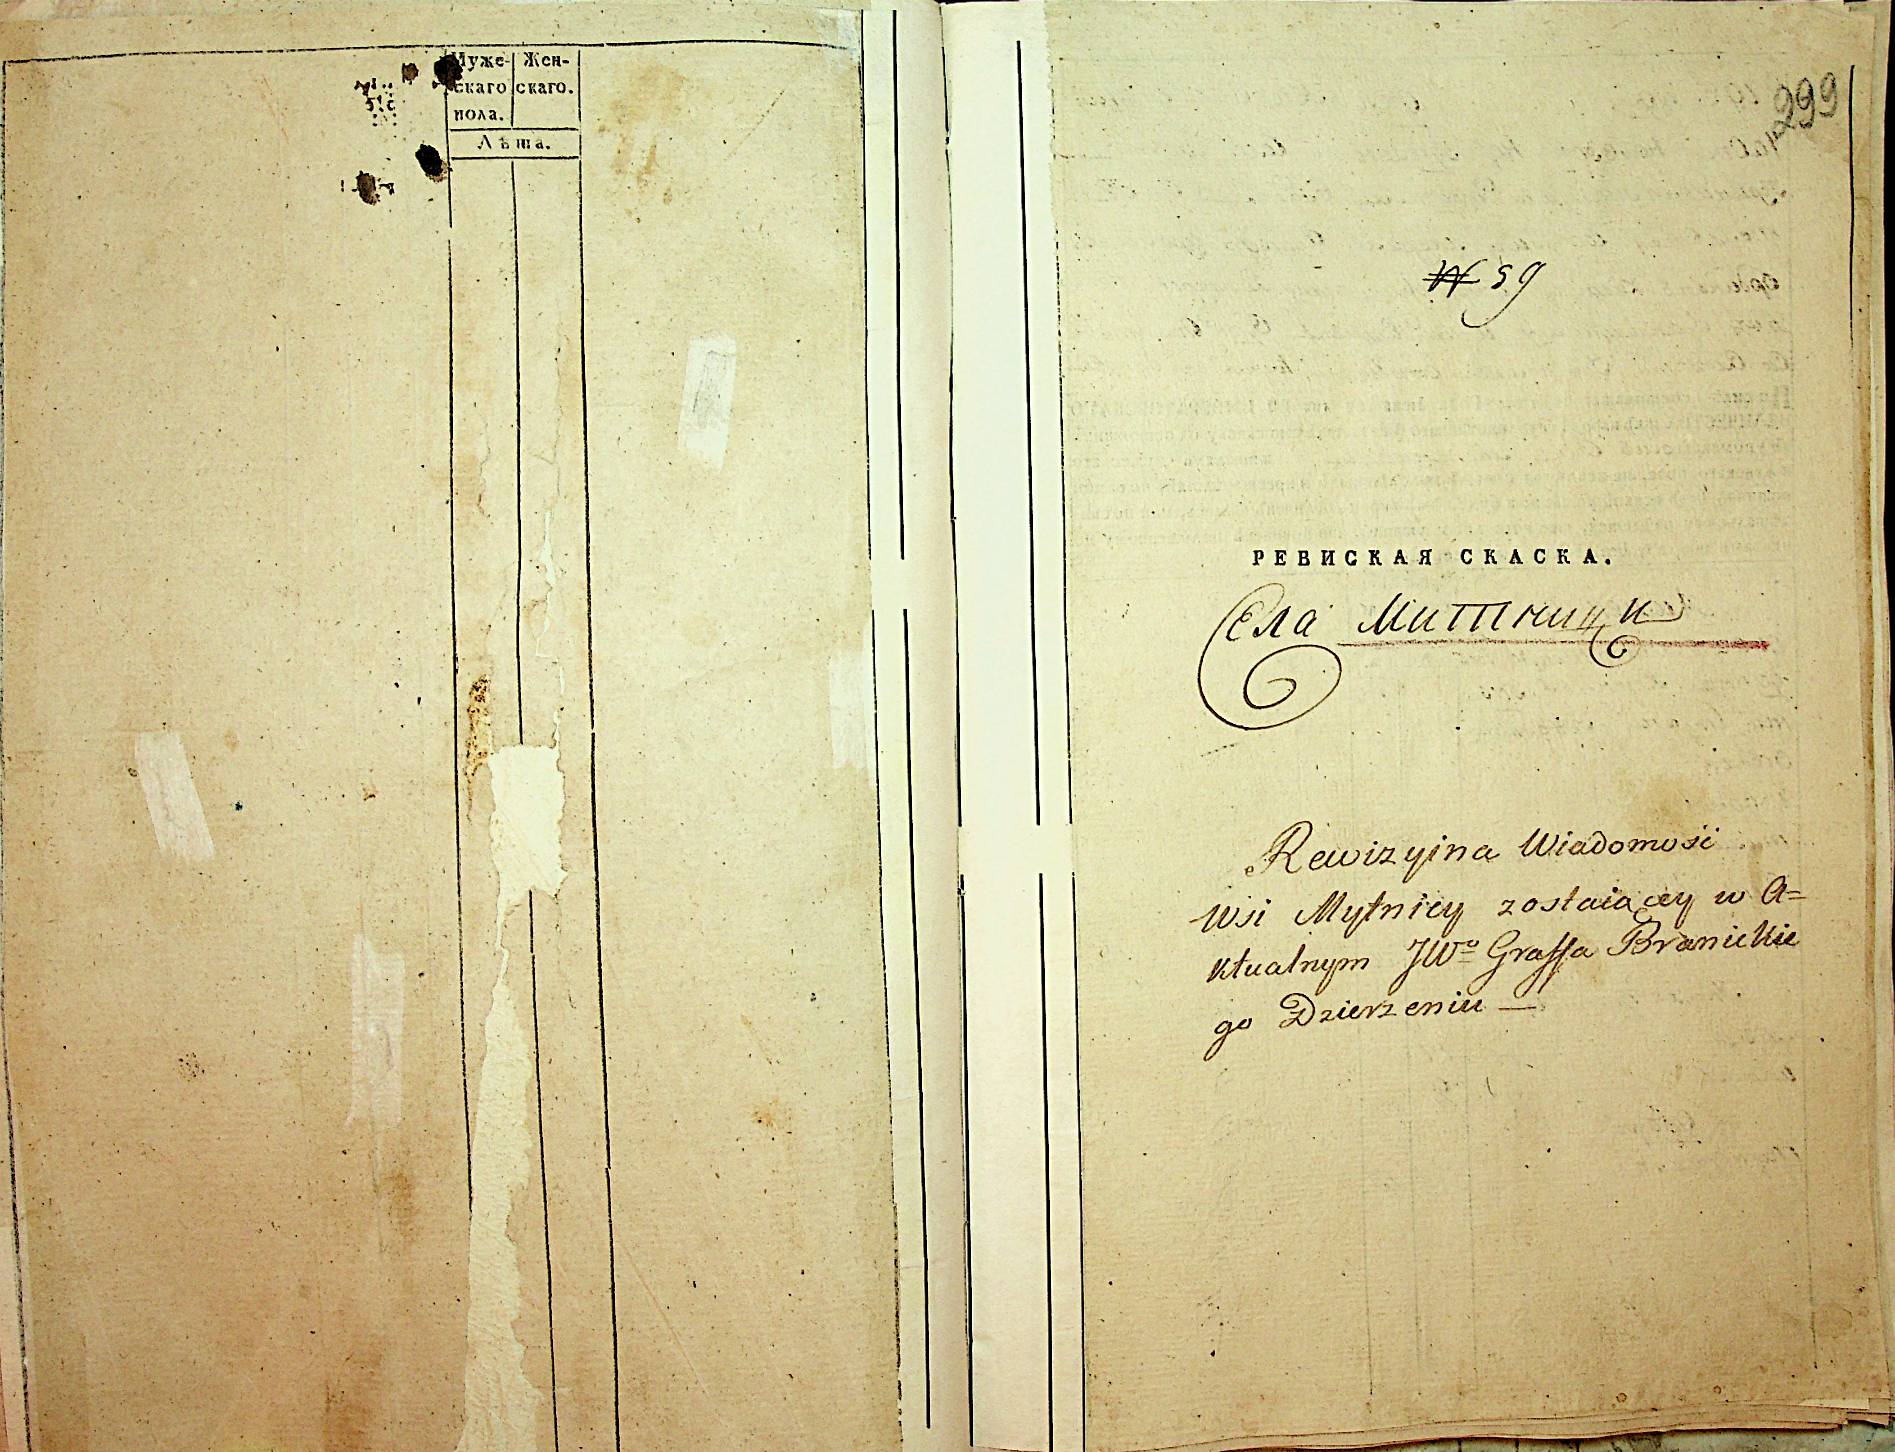 Муже- Жен-
скаго скаго.
пола.
Лѣта.
299
№ 59
РЕВИСКАЯ СКАСКА.
Села Митници
Rewizyina Wiadomość
Wsi Mytnicy zostaiącey w A=
ktualnym JWº Graffa Branickie
go Dzierzeniu —